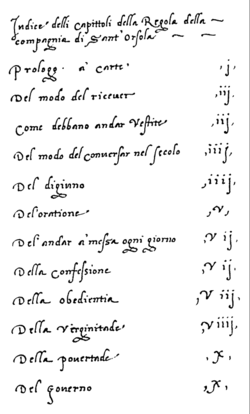 Indice delli capittoli della Regola della
compagnia di Sant'Orsola
Prologo . a' carte .j.
Del modo del riceuer .iij.
Come debbano andar Vestite .iij.
Del modo del conuersar nel secolo .iiij.
Del digiuno .iiij.
Del'oratione .V.
Del' andar a' messa ogni giorno .V ij.
Della Confessione .V ij.
Della obedientia .V iij.
Della Verginitade .V iiij.
Della pouertade .X.
Del gouerno .X.